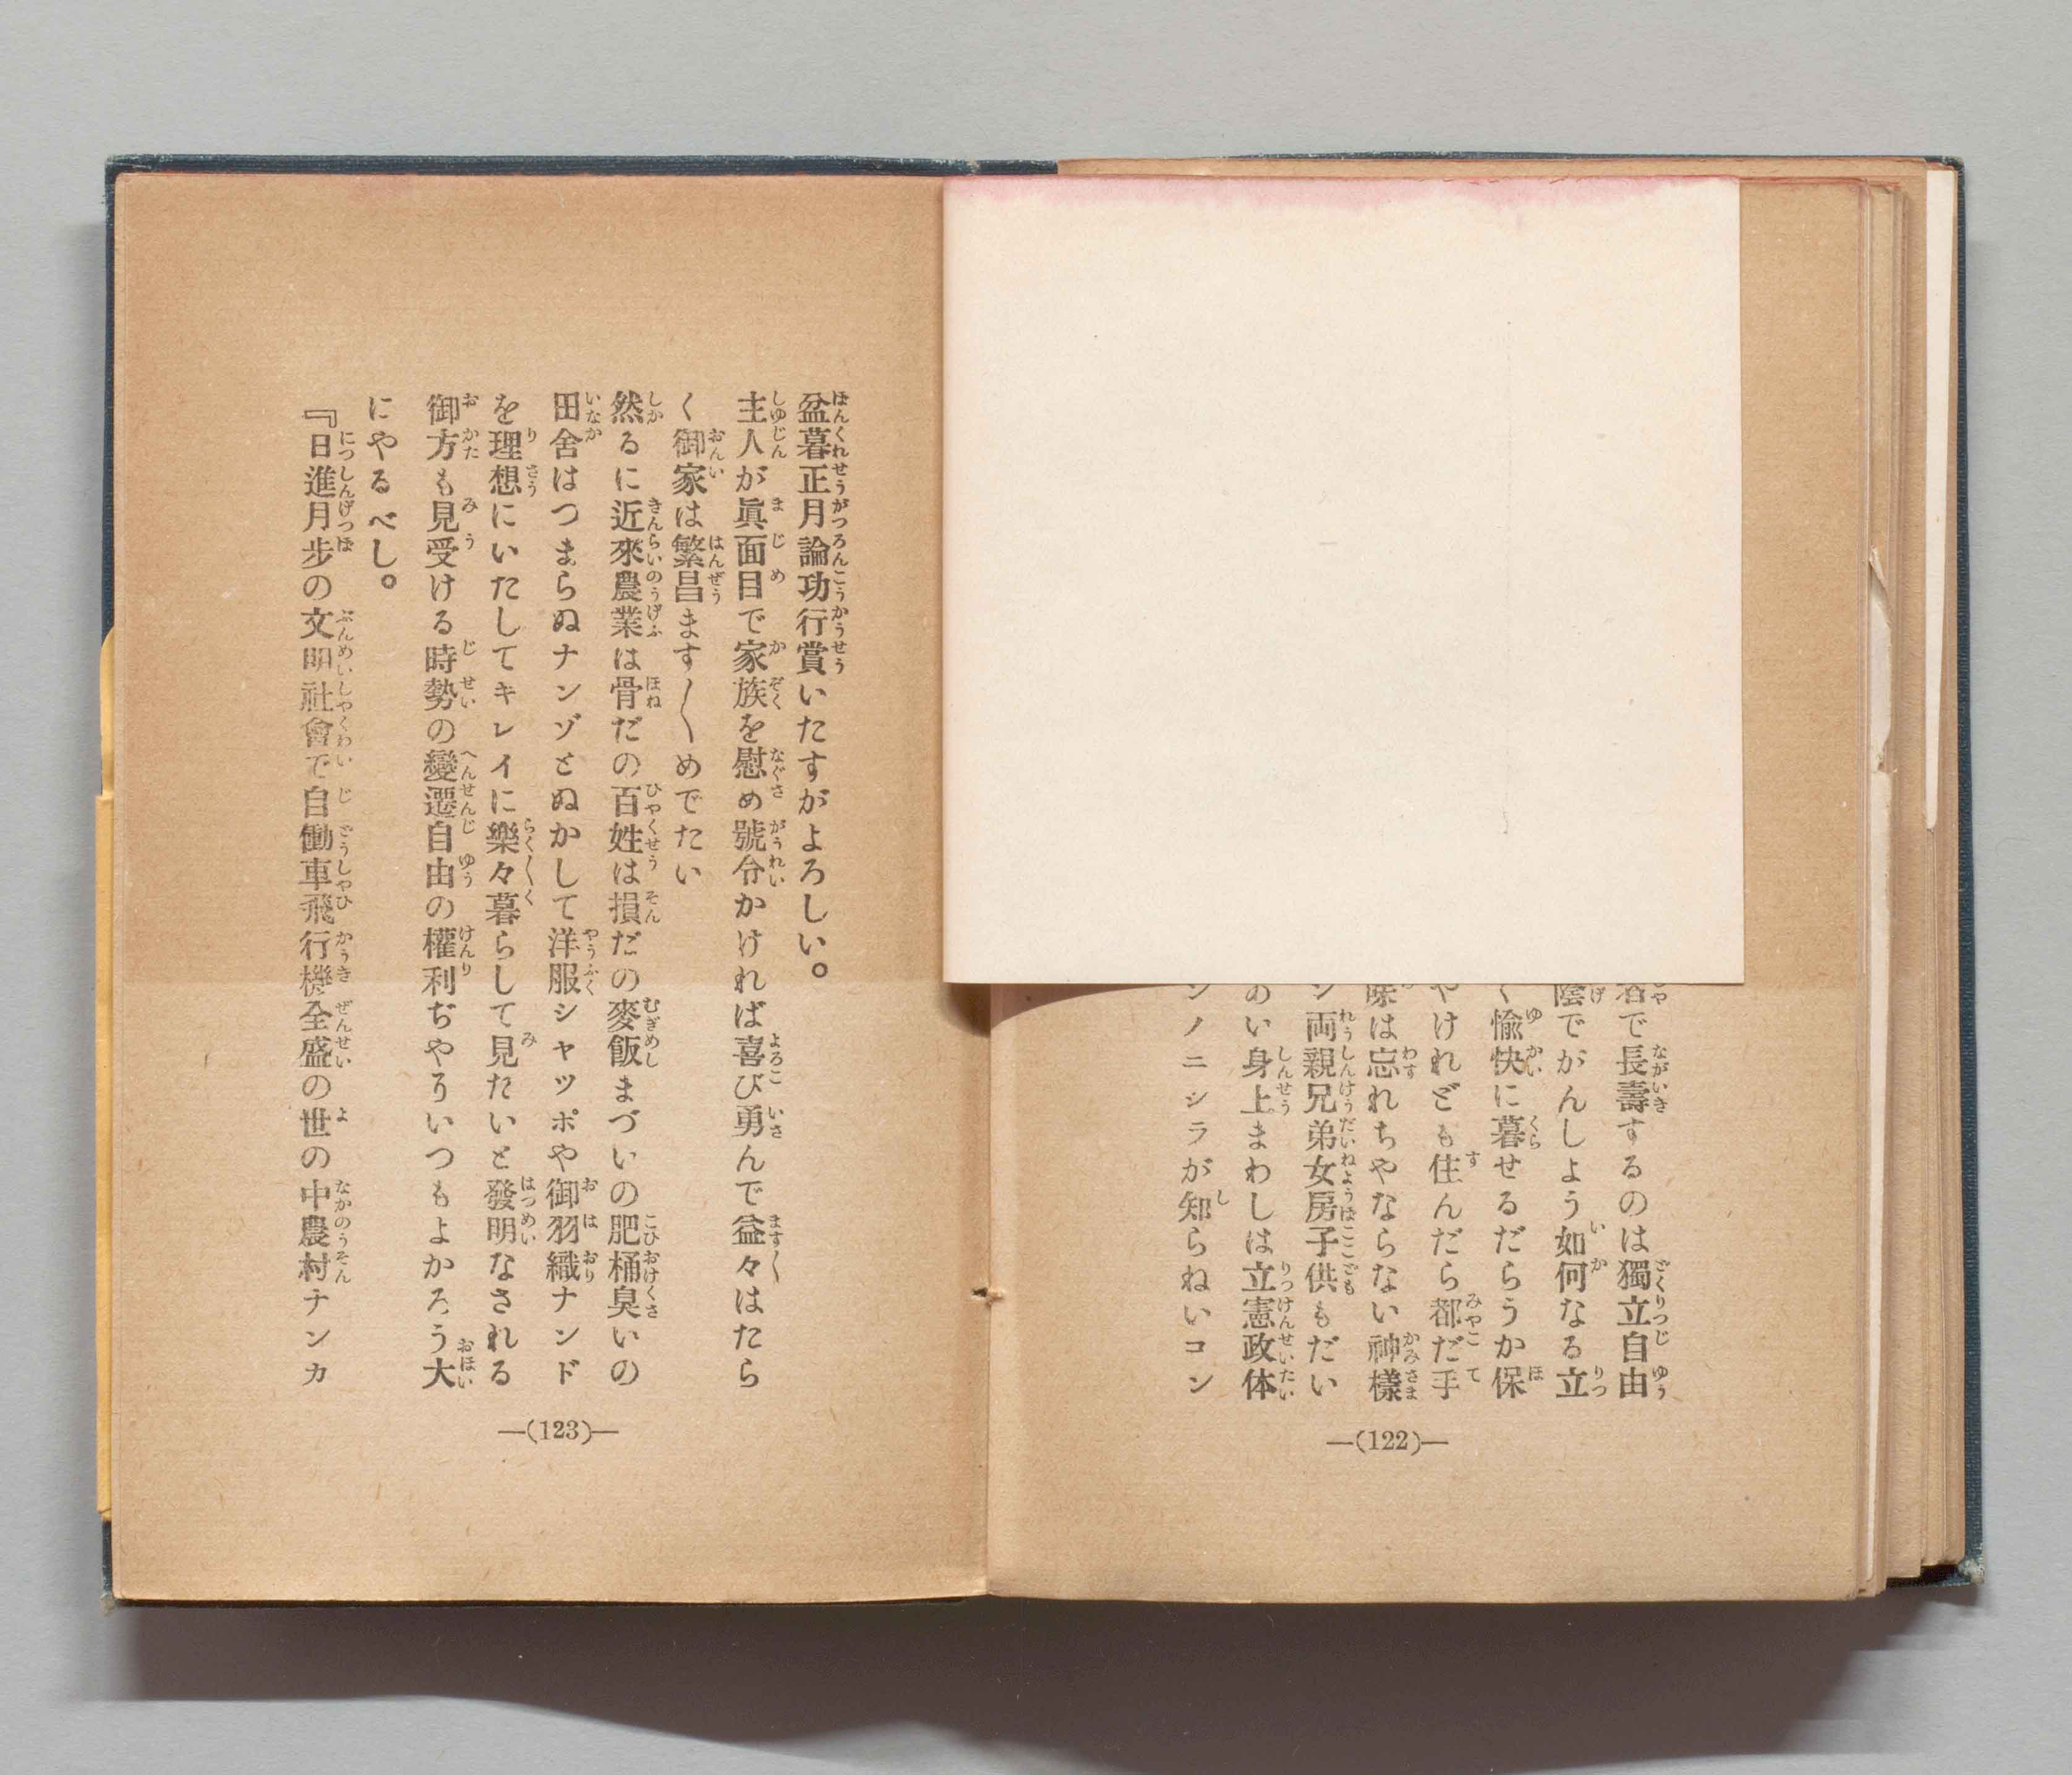 で長壽するのは獨立自由
陰でがんしよう如何なる立
く愉快に暮せるだらうか保
やけれども住んだら都だ手
は忘れちやならない神樣
ン両親兄弟女房子供もだい
めい身上まわしは立憲政体
ンノニシラが知らねいコン
—(122)—
盆暮正月論功行賞いたすがよろしい。
主人が眞面目で家族を慰め號令かければ喜び勇んで益々はたら
く御家は繁昌ます〳〵めでたい
然るに近來農業は骨だの百姓は損だの麥飯まづいの肥桶臭いの
田舍はつまらぬナンゾとぬかして洋服シャツポや御羽織ナンド
を理想にいたしてキレイに樂々暮らして見たいと發明なされる
御方も見受ける時勢の變遷自由の權利ぢやろいつもよかろう大
にやるべし。
『日進月步の文明社會で自働車飛行機全盛の世の中農村ナンカ
—(123)—